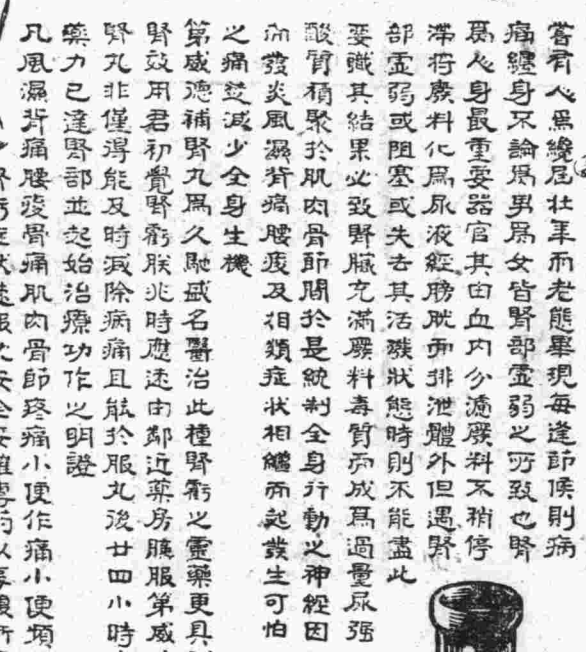 嘗有人焉纔屆壯年而老態畢現每逢節候則病
痛纏身不論爲男爲女皆腎部虛弱之所致也腎
爲人身最重要器官其由血內分濾廢料不稍停
滯將廢料化爲尿液經膀胱而排泄體外但遇腎
部虛弱或阻塞或失去其活潑狀態時則不能盡此
要職其結果必致腎臟充滿廢料毒質而成爲過量尿强
酸質積聚於肌肉骨節間於是統制全身行動之神經因
而發炎風濕背痛腰痠及相類症狀相繼而起發生可怕
之痛楚減少全身生機
第威德補腎丸爲久馳盛名醫治此種腎虧之靈藥更具
腎效用君初覺腎虧朕兆時應速由鄰近藥房購服第威
腎丸非僅得能及時減除病痛且能於服丸後廿四小時
藥力已達腎部並起始治療功作之明證
凡風濕背痛腰痠骨痛肌肉骨節疼痛小便作痛小便頻